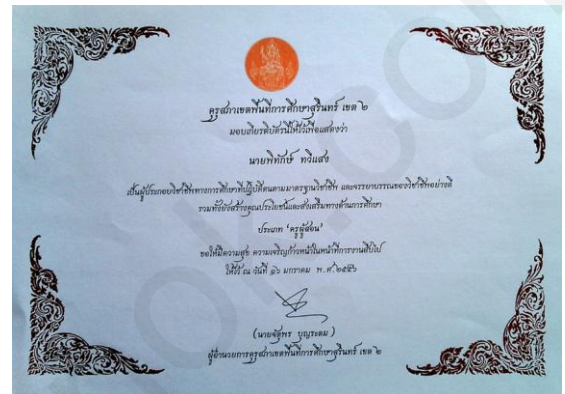 คุรุสภาเขตพื้นที่การศึกษาสุรินทร์ เขต ๒
มอบเกียรติบัตรนี้ให้ไว้เพื่อแสดงว่า
นายพิทักษ์ ทวีแสง
เป็นผู้ประกอบวิชาชีพทางการศึกษาที่ปฏิบัติตนตามมาตรฐานวิชาชีพ และจรรยาบรรณของวิชาชีพอย่างดี
รวมทั้งยังสร้างคุณประโยชน์และส่งเสริมทางด้านการศึกษา
ประเภท "ครูผู้สอน"
ขอให้มีความสุข ความเจริญก้าวหน้าในหน้าที่การงานสืบไป
ให้ไว้ ณ วันที่ ๑๖ มกราคม พ.ศ.๒๕๕๖
บุญระดม )
ผู้อำนวยการคุรุสภาเขตพื้นที่การศึกษาสุรินทร์ เขต ๒